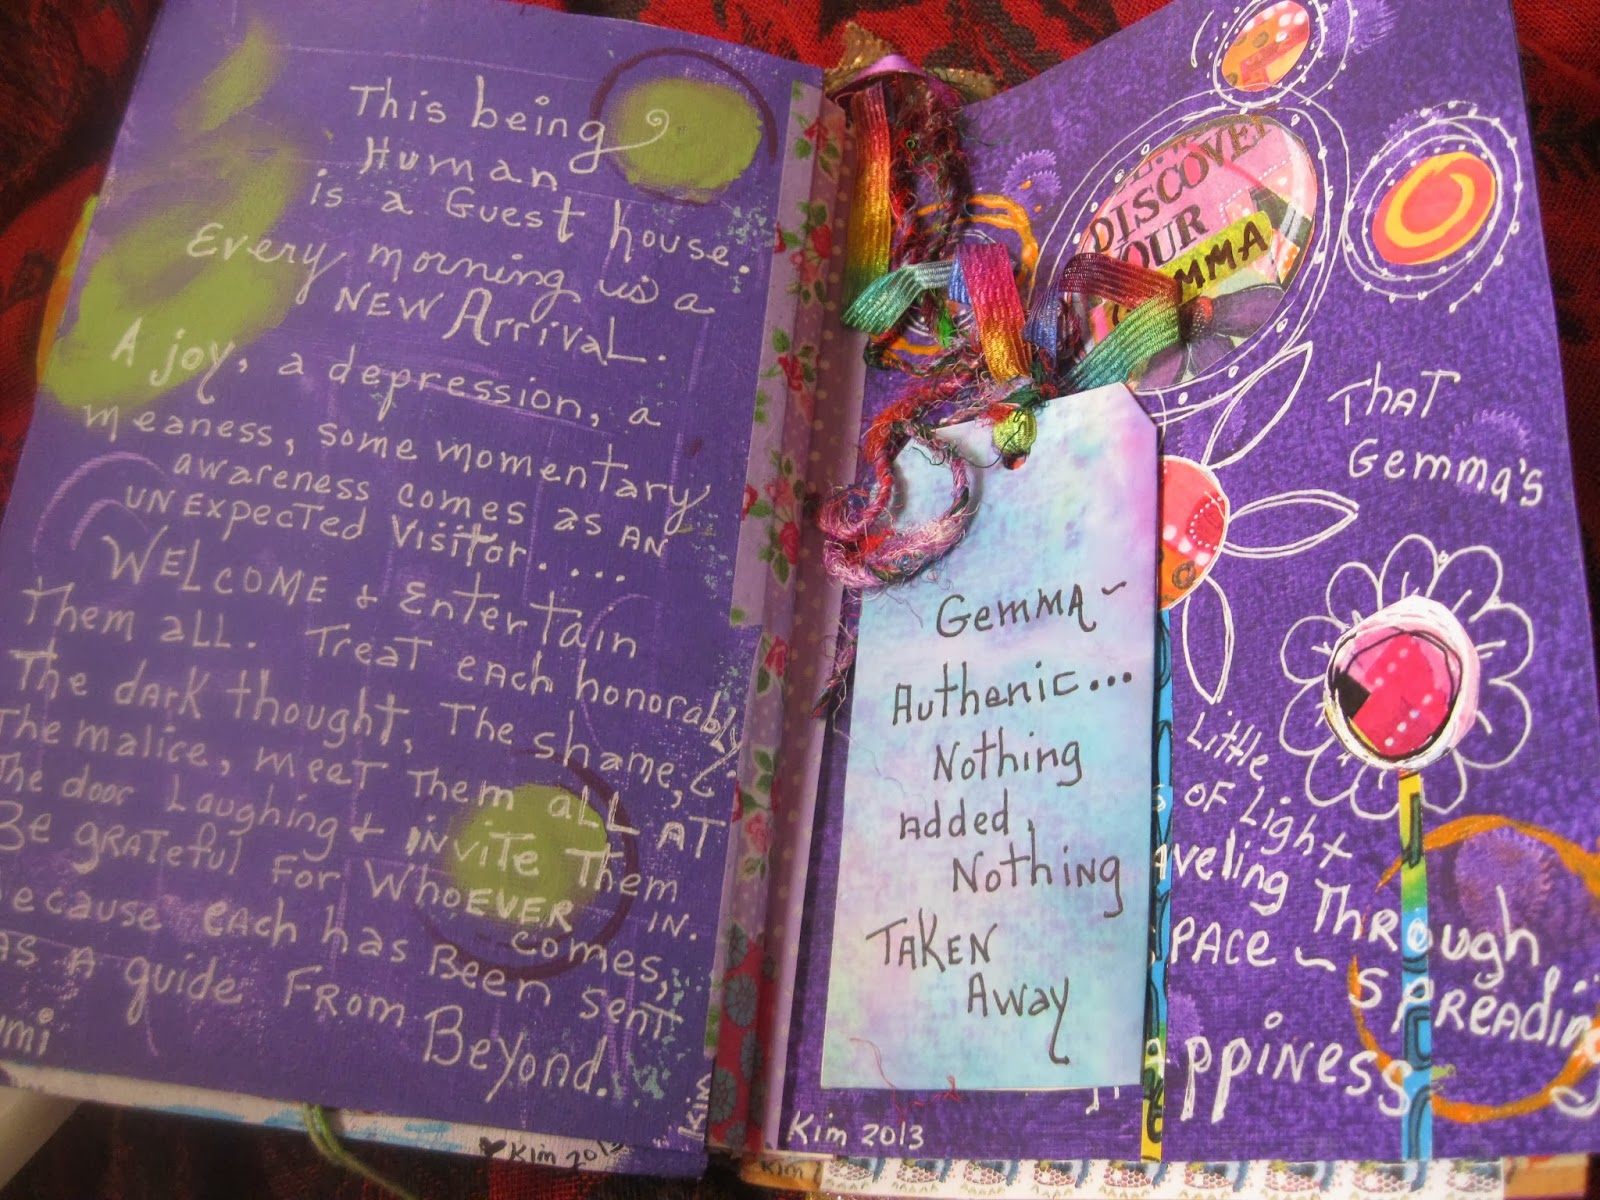 This being
Human
is a Guest house.
Every morning is a
NEW Arrival.
A joy, a depression, a
meaness, some momentary
awareness comes as AN
UNEXPECTED Visitor....
WELCOME & Entertain
Them all. Treat each honorably
The dark thought, The shame,
The malice, meet Them ALL AT
The door Laughing & invite Them IN.
Be grateful For WhoEVER comes,
ecause each has Been sent
as A guide From Beyond.
umi
♥ Kim 2013
Kim
DISCOVER
YOUR
MMA
That
Gemma's
Gemma~
Authenic...
Nothing
added,
Nothing
Taken
Away
Little
s OF Light
aveling Through
space ~ spreading
appiness
Kim 2013
Kim